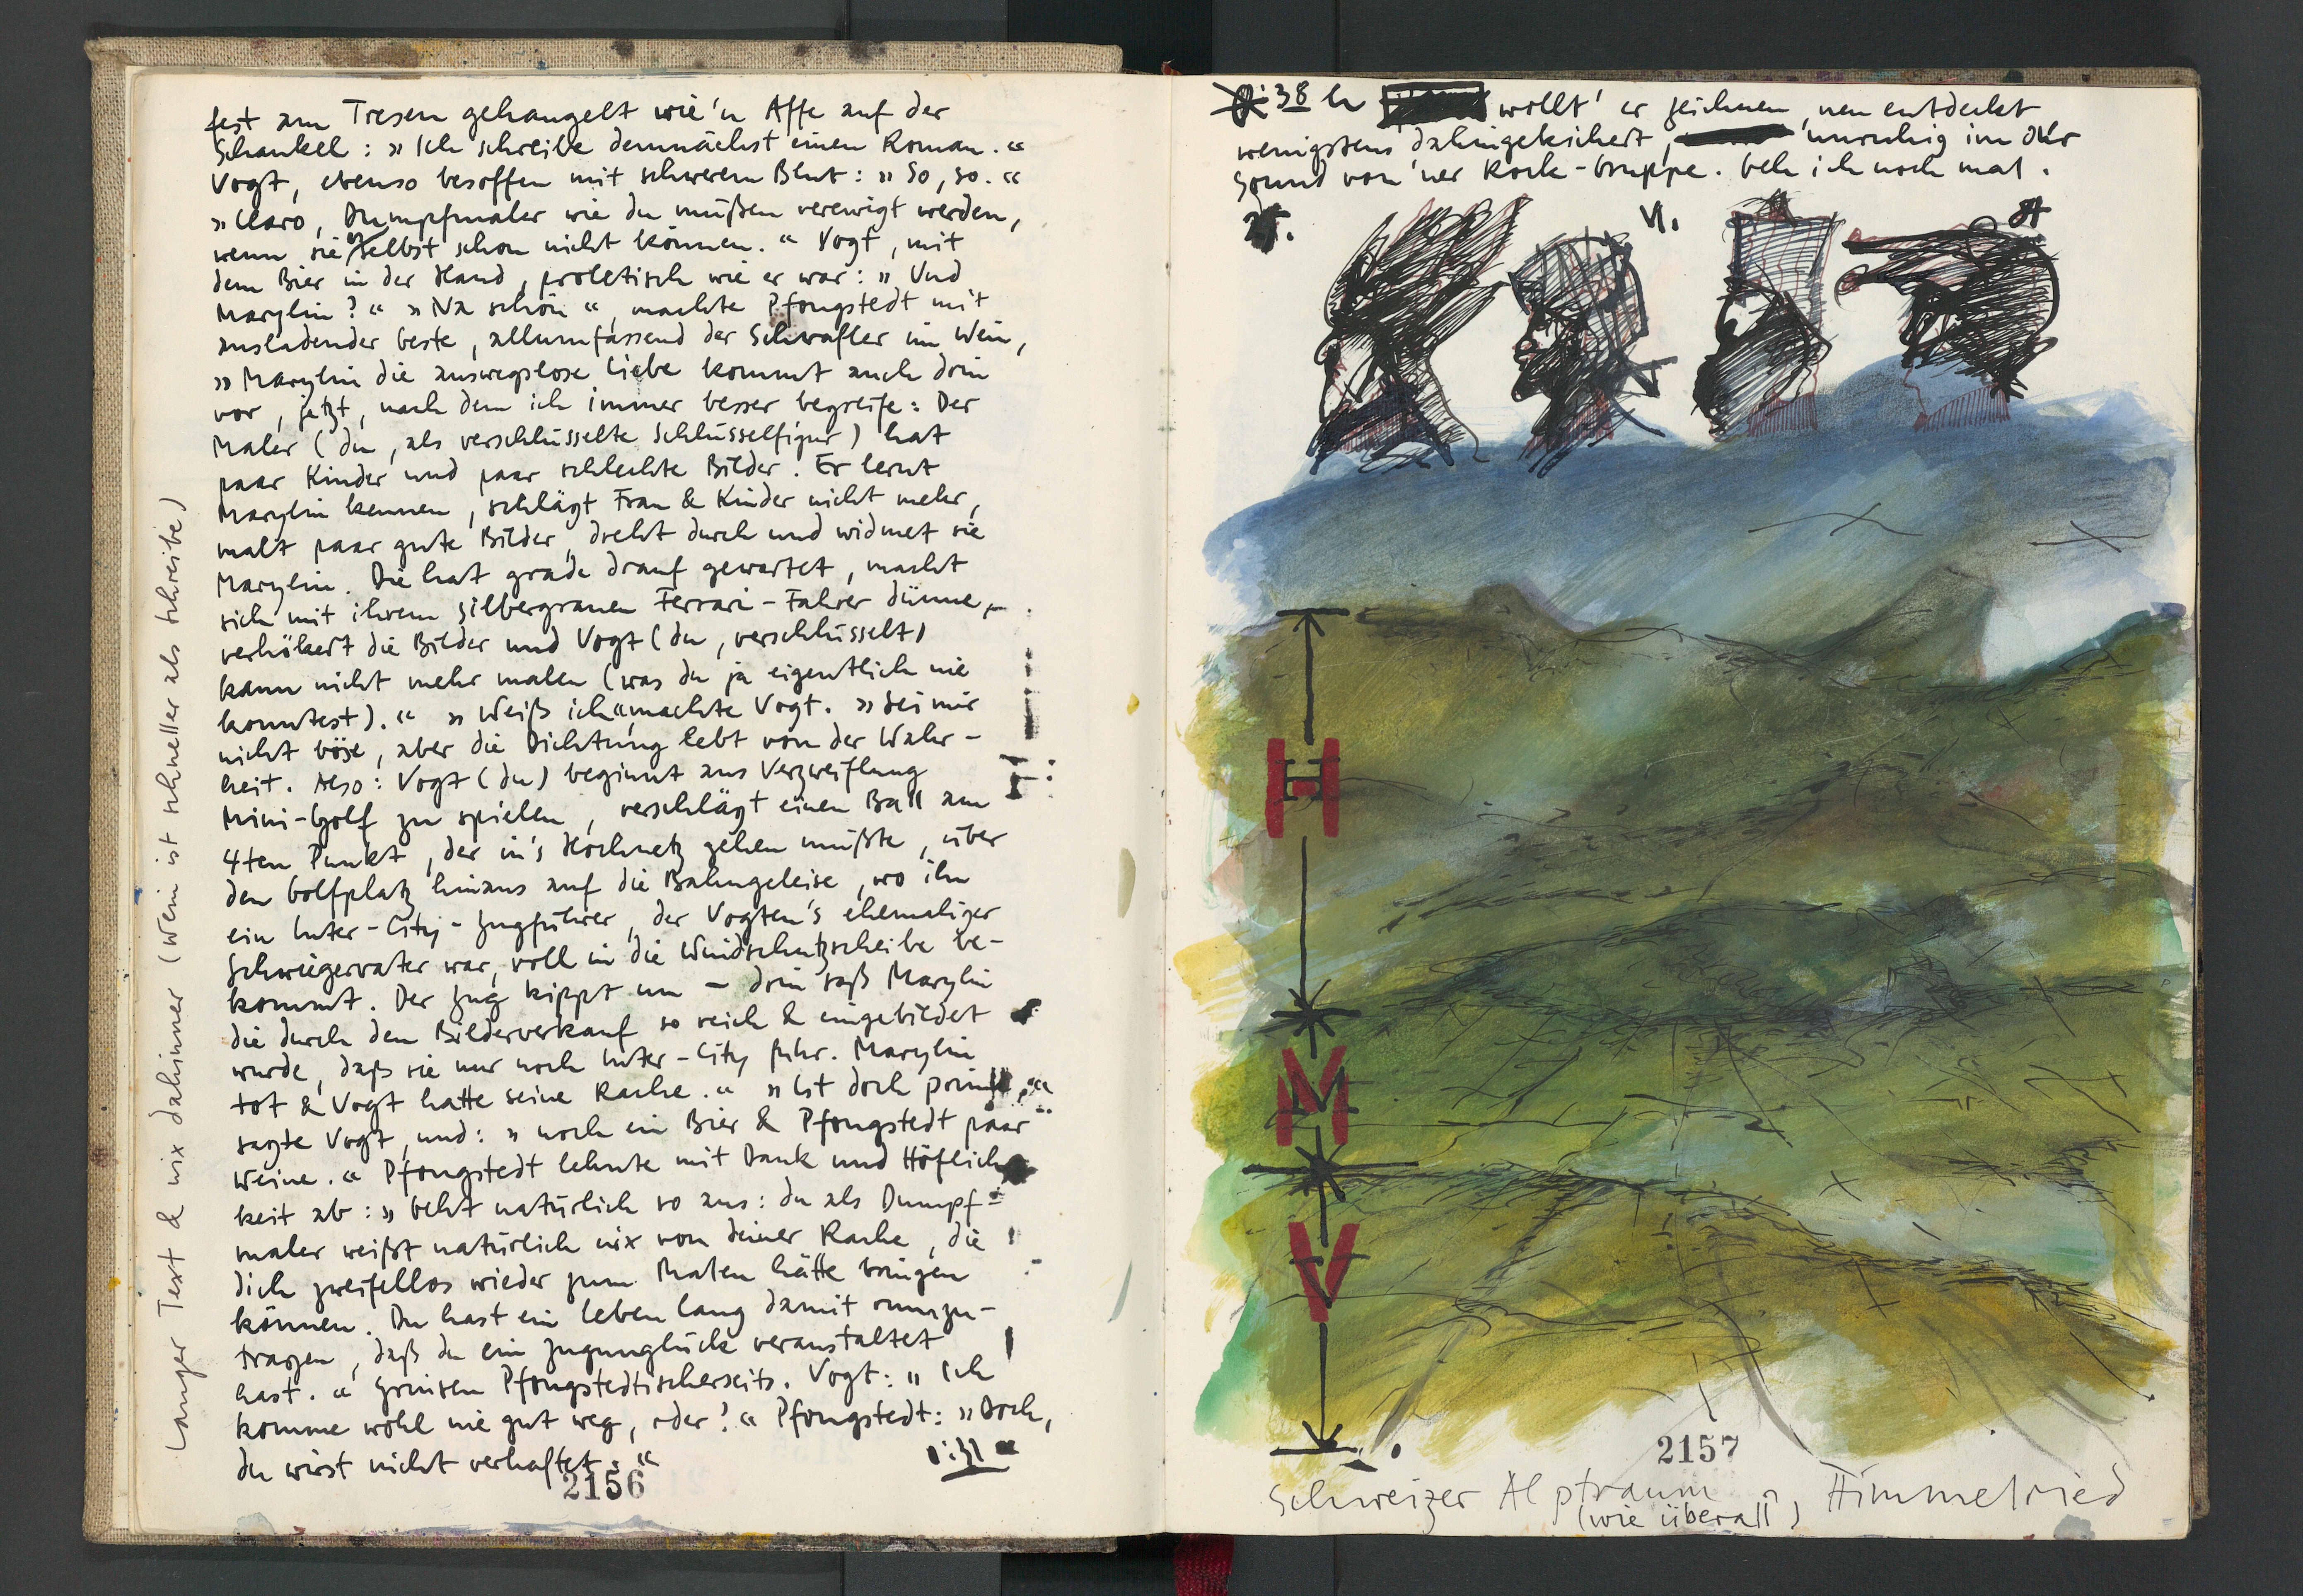 fest am Tresen gehangelt wie'n Affe auf der
Schaukel: » Ich schreibe demnächst einen Roman. «
Vogt, ebenso besoffen mit schwerem Blut: » So, so. «
» Claro, Dumpfmaler wie du müßen verewigt werden,
wenn sie es selbst schon nicht können. « Vogt, mit
dem Bier in der Hand, proletisch wie er war: » Und
Marylin? « » Na schön «, machte Pfongstedt mit
ausladender Geste, allumfassend der Schwafler im Wein,
» Marylin die ausweglose Liebe kommt auch drin
vor, jetzt, nach dem ich immer besser begreife: Der
Maler (du, als verschlüsselte Schlüsselfigur) hat
paar Kinder und paar schlechte Bilder. Er lernt
Marylin kennen, schlägt Frau & Kinder nicht mehr,
malt paar gute Bilder, dreht durch und widmet sie
Marylin. Die hat grade drauf gewartet, macht
sich mit ihrem silbergrauen Ferrari-Fahrer dünne,
verhökert die Bilder und Vogt (du, verschlüsselt)
kann nicht mehr malen (was du ja eigentlich nie
konntest). « » Weiß ich « machte Vogt. » Sei mir
nicht böse, aber die Dichtung lebt von der Wahr-
heit. Also: Vogt (du) beginnt aus Verzweiflung
Mini-Golf zu spielen, verschlägt einen Ball am
4ten Punkt, der in's Hochnetz gehen müßte, über
den Golfplatz hinaus auf die Bahngeleise, wo ihn
ein Inter-City-Zugführer, der Vogten's ehemaliger
Schwiegervater war, voll in die Windschutzscheibe be-
kommt. Der Zug kippt um – drin saß Marylin
die durch den Bilderverkauf so reich & eingebildet
wurde, daß sie nur noch Inter-City fuhr. Marylin
tot & Vogt hatte seine Rache. « » Ist doch prima, «
sagte Vogt, und: » noch ein Bier & Pfongstedt paar
Weine. « Pfongstedt lehnte mit Dank und Höflich-
keit ab: » Geht natürlich so aus: du als Dumpf-
maler weißt natürlich nix von deiner Rache, die
dich zweifellos wieder zum Malen hätte bringen
können. Du hast ein Leben lang damit rumzu-
tragen, daß du ein Zugunglück veranstaltet
hast. « Grinsen Pfongstedtischerseits. Vogt: » Ich
komme wohl nie gut weg, oder? « Pfongstedt: » Doch,
du wirst nicht verhaftet. «
:31
2156
Langer Text & nix dahinner (Wein ist schneller als Schreibe)
:38 h wollt' er zeichnen, neu entdeckt
wenigstens dahingekichert, unruhig im Ohr
Sound von 'ner Rock-Gruppe. Geh ich noch mal.
H
M
V
2157
Schweizer Alptraum, Himmelried
(wie überall)